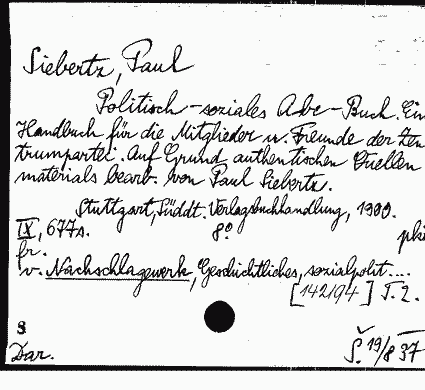 Siebertz, Paul
Politisch-soziales Abc-Buch. Ein
Handbuch für die Mitglieder u. Freunde der Zen
trumpartei. Auf Grund authentischen Quellen
materials bearb. von Paul Siebertz.
Stuttgart, Südd. Verlagsbuchhandlung, 1900.
IX, 677s. 8°
br.
v. Nachschlagewerk, Geschichtliches, sozialpolit....
[142194] T. 2.
8
Dar. Š. 19/8 37